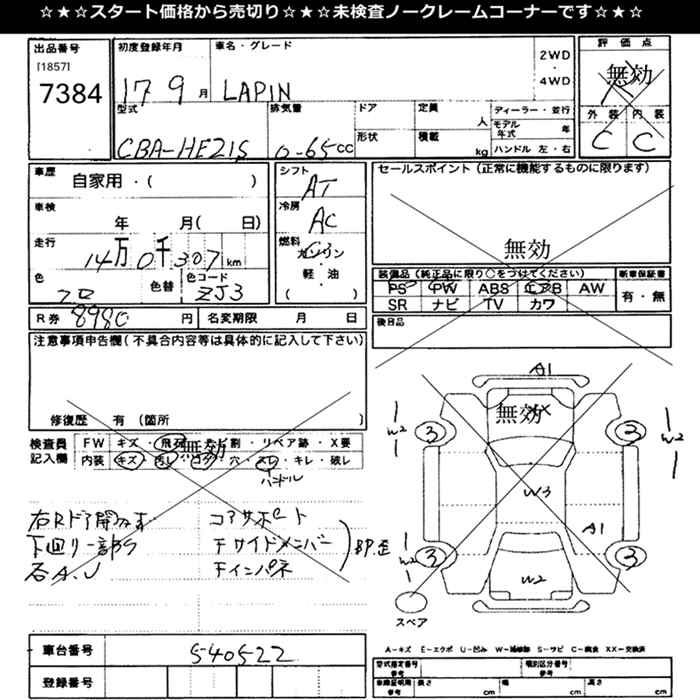 ☆★☆★スタート価格から売切り☆★☆★未検査ノークレームコーナーです☆★☆
出品番号
[1857]
7384
初度登録年月
17 9 月
車名・グレード
LAPIN
2WD
・
4WD
評価点
無効
外装 内装
C C
型式
CBA-HE21S
排気量
0-65CC
ドア
形状
定員
人
積載
kg
ディーラー・並行
モデル年式 年
ハンドル 左・右
車歴
自家用・( )
車検
年 月( 日)
走行
14万0千307km
色
クロ
色替
色コード
ZJ3
シフト
AT
冷房
AC
燃料
ガソリン
・
軽・油
( )
セールスポイント(正常に機能するものに限ります)
無効
装備品(純正品に限り○をつけてください)
PS PW ABS エアB AW
SR ナビ TV カワ
新車保証書
有・無
後日品
R券 8980 円
名変期限 月 日
注意事項申告欄(不具合内容等は具体的に記入して下さい)
修復歴 有(箇所 )
検査員記入欄
FW キズ・飛石・ 割・リペア跡・X要
内装 キズ 汚レ コゲ・穴・スレ・キレ・破レ
無効
ハンドル
右Rドア開
下回り一部サ
コアサポート
Fサイドメンバー
Fインパネ
BP歪
A1
無効
3 3
W2 W2
W3
A1
3 3
W2 W2
W2
スペア
車台番号
540522
登録番号
A-キズ E-エクボ U-凹み W-補修跡 S-サビ C-腐食 XX-交換済
型式指定番号
参考
類別区分番号
参考
車検証明用
参考
長さ cm
幅 cm
高さ cm